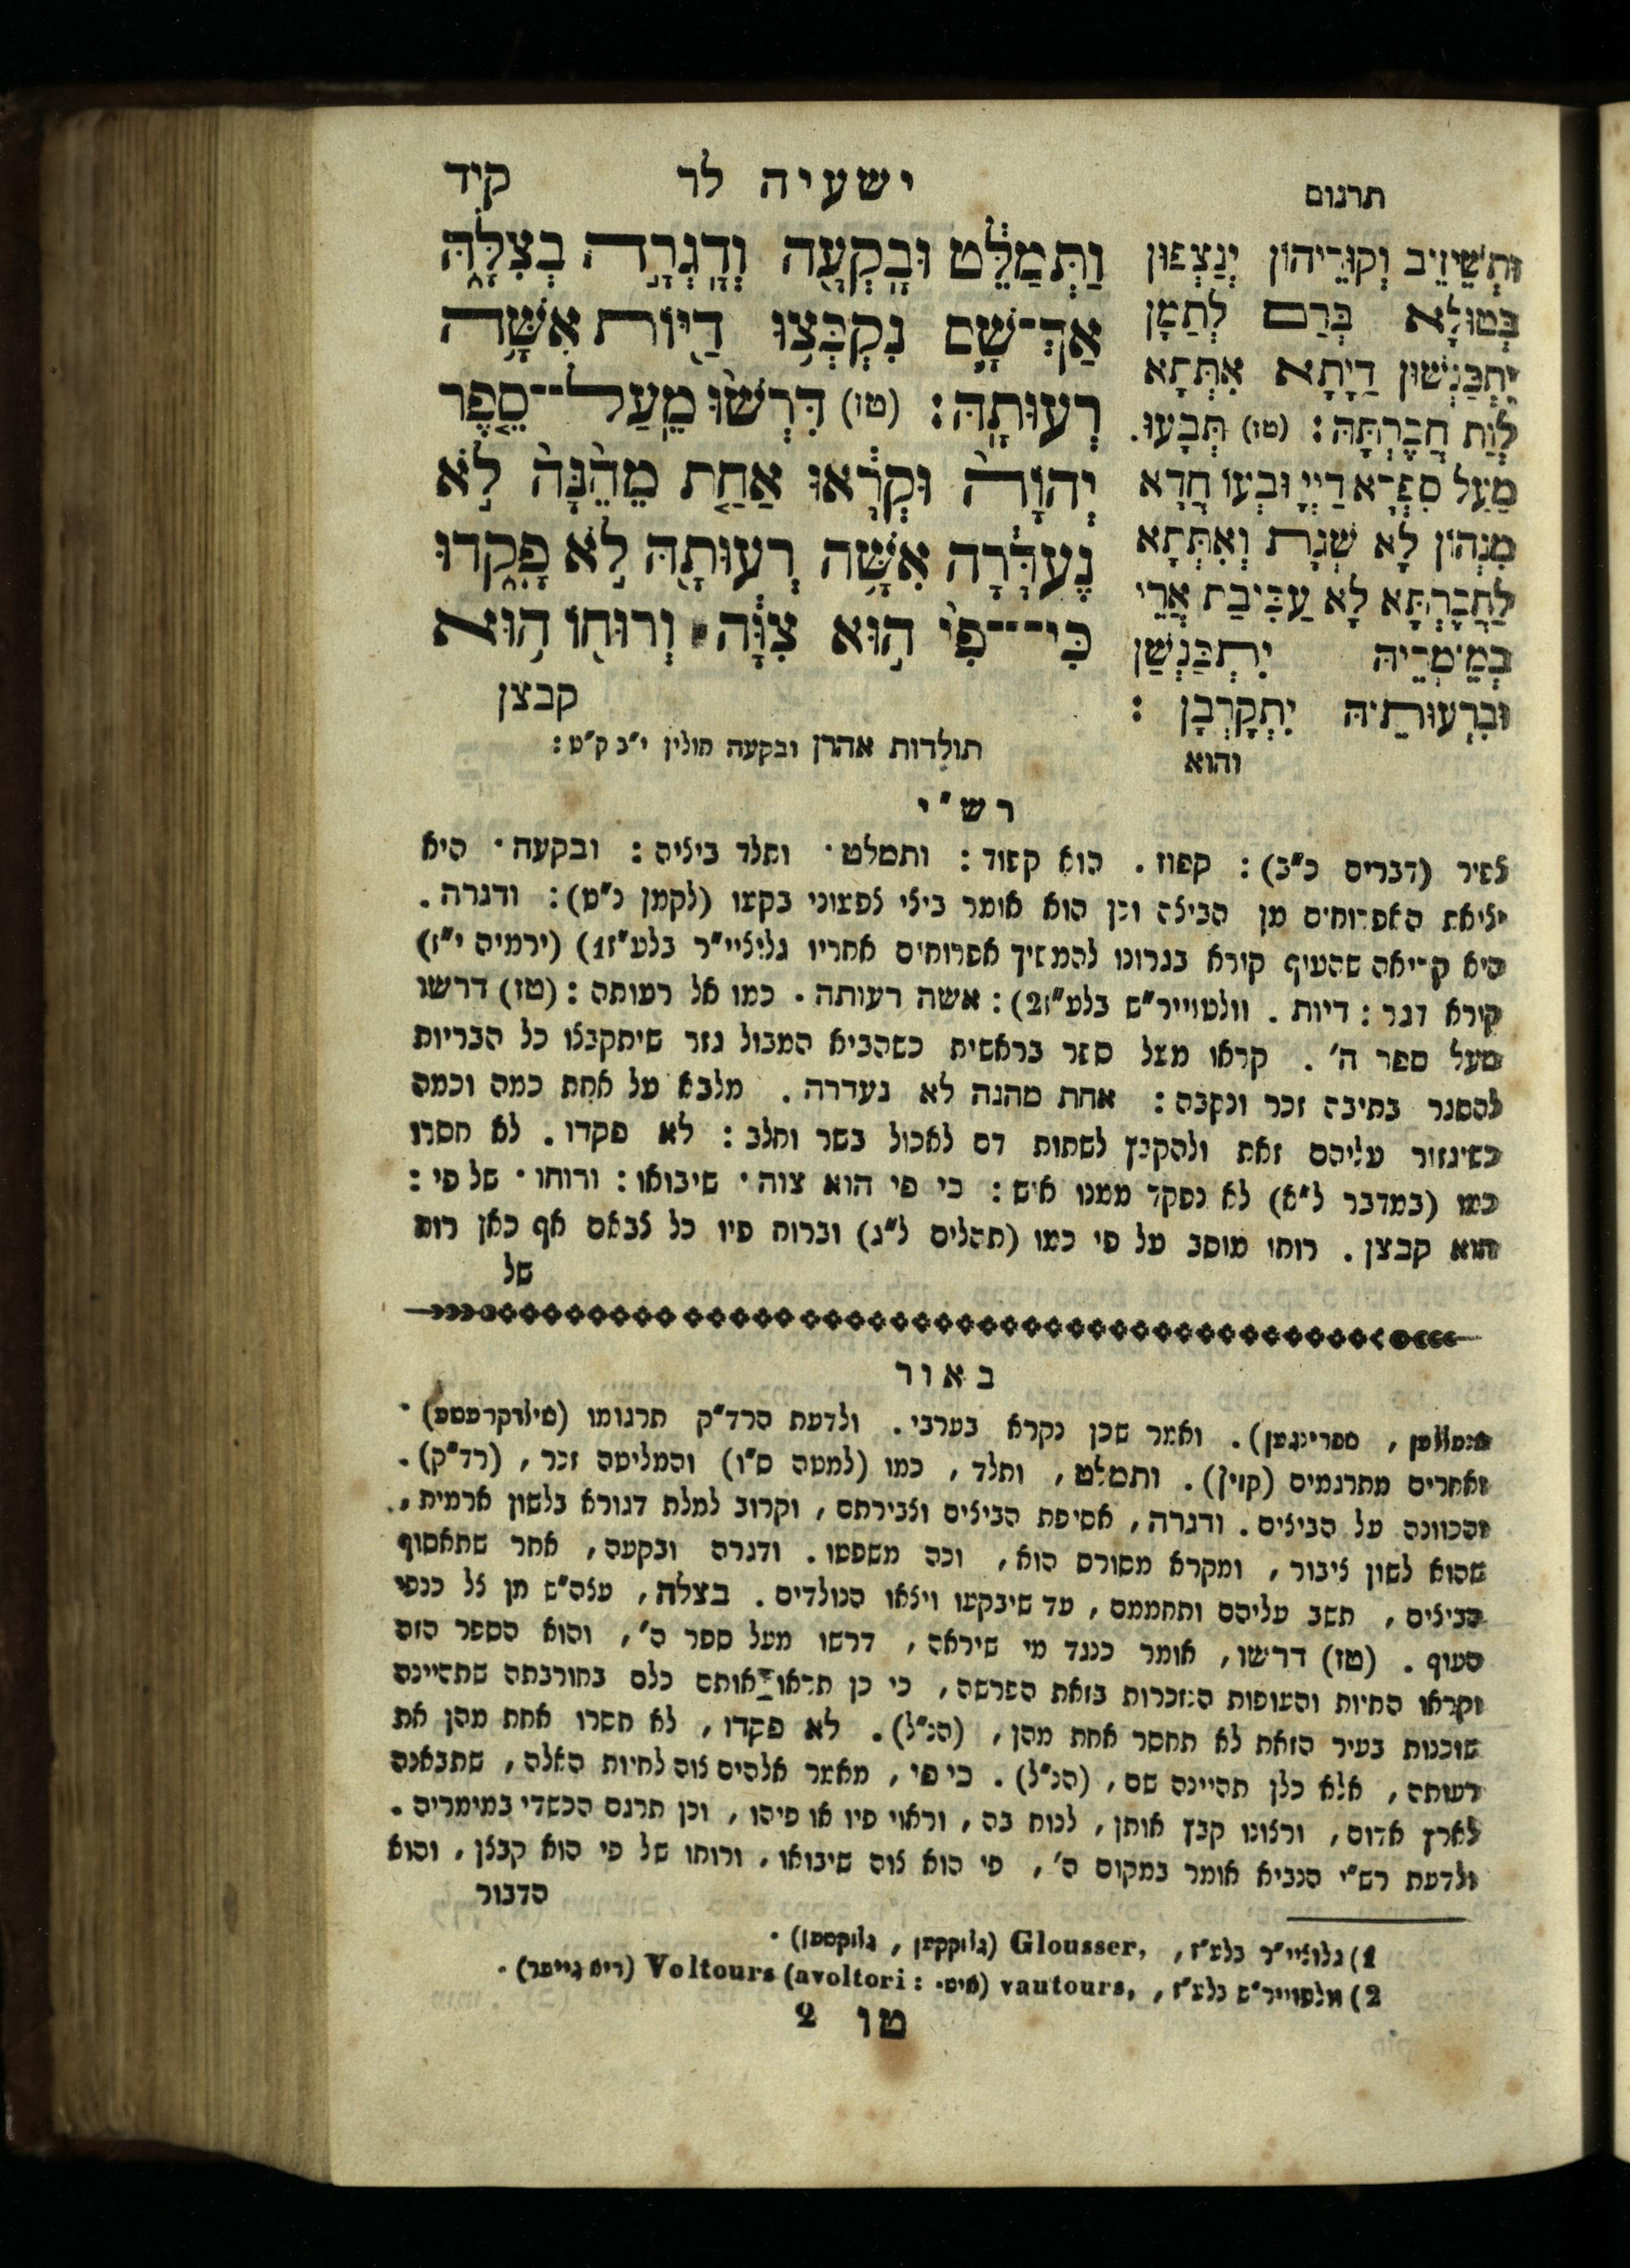 תרגום
ישעיה לד
קיד
וַתְּמַלֵּ֔ט וּבָֽקְעָ֖ה וְדָֽגְרָ֣ה בְצִלָּ֑הּ
אַךְ־שָׁ֛ם נִקְבְּצ֥וּ דַיּ֖וֹת אִשָּׁ֥ה
רְעוּתָֽהּ׃ (טז) דִּרְשׁ֨וּ מֵֽעַל־סֵ֤פֶר
יְהוָֹה֙ וּקְרָ֔אוּ אַחַ֤ת מֵהֵ֙נָּה֙ לֹ֣א
נֶעְדָּ֔רָה אִשָּׁ֥ה רְעוּתָ֖הּ לֹ֣א פָקָ֑דוּ
כִּי־פִי֙ ה֣וּא צִוָּ֔ה וְרוּח֖וֹ ה֥וּא
קבצן
וּתְשֵׁיזֵיב וְקוּרֵיהוֹן יְנַצְפוּן
בְּטוּלָא בְּרַם לְתַמָּן
יִתְכַּנְּשׁוּן דַיָתָא אִתְּתָא
לְוַת חֲבֶרְתַּהּ: (טז) תְּבָעוּ
מֵעַל סִפְרָא דַיְיָ וּבְעוֹ חֲדָא
מִנְהוֹן לָא שְׁגַת וְאִתְּתָא
לַחֲבֶרְתָּא לָא עַבִּיבַת אֲרֵי
בְמֵימְרֵיהּ יִתְכַּנְשַׁן
וּבִרְעוּתֵיהּ יִתְקָרְבָן :
והוא
תולדות אהרן ובקעה חולין י״ב ק״ט:
רש״י
לפיר (דברים כ״ב): קפוז. הוא קפוד: ותמלט· ותלד ביציה: ובקעה· היא
יציאת האפרוחים מן הביצה וכן הוא אומר ביצי לפעוני בקעו (לקמן נ״ט): ודגרה.
היא קריאה שהעוף קורא בגרונו להמשיך אפרוחים אחריו גלוציי״ר בלע״ז1) (ירמיה י״ז)
קורא דגר: דיות. וולטויי״ר״ש בלע״ז2): אשה רעותה. כמו אל רעותה: (טז) דרשו
מעל ספר ה׳. קראו מעל ספר בראשית כשהביא המבול גזר שיתקבצו כל הבריות
להסגר בתיבה זכר ונקבה: אחת מהנה לא נעדרה. מלבא על אחת כמה וכמה
כשיגזור עליהם זאת ולהקבץ לשתות דם לאכול בשר וחלב: לא פקדו. לא חסרו
כמו (במדבר ל״א) לא נפקד ממנו איש: כי פי הוא צוה· שיבואו: ורוחו· של פי:
הוא קבצן. רוחו מוסב על פי כמו (תהלים ל״ג) וברוח פיו כל צבאם אף כאן רוח
של
באור
ספרינגען). ואמר שכן נקרא בערבי. ולדעת הרד״ק תרגומו (שילדקרעטע)·
ואחרים מתרגמים (קויץ). ותמלט, ותלד, כמו (למטה ס״ו) והמליטה זכר, (רד״ק).
והכוונה על הביצים. ודגרה, אסיפת הביצים וצבירתם, וקרוב למלת דגורא בלשון ארמית,
שהוא לשון ציבור, ומקרא מסורס הוא, וכה משפטו. ודגרה ובקעה, אחר שתאסוף
הביצים, תשב עליהם ותחממם, עד שיבקעו ויצאו הנולדים. בצלה, עלה״ש מן צל כנפי
העוף. (טז) דרשו, אומר כנגד מי שיראה, דרשו מעל ספר ה׳, והוא הספר הזה
וקראו החיות והעופות הנזכרות בזאת הפרשה, כי כן תראו אותם כלם בחורבתה שתהיינה
שוכנות בעיר הזאת לא תחסר אחת מהן, (הנ״ל). לא פקדו, לא חסרו אחת מהן את
רעותה, אלא כלן תהיינה שם, (הנ״ל). כי פי, מאמר אלהים צוה לחיות האלה, שתבאנה
לארץ אדום, ורצונו קבץ אותן, לנוח בה, וראוי פיו או פיהו, וכן תרגם הכשדי במימריה.
ולדעת רש״י הנביא אומר במקום ה׳, פי הוא צוה שיבואו, ורוחו של פי הוא קבצן, והוא
הדבור
1) גלוציי״ר בלע״ז, Glousser, (גלוקקען, גלוקסען)·
2) וולטויי״ר״ש בלע״ז, vautours, (איט. avoltori:) Voltours (דיא גייער)·
טו 2